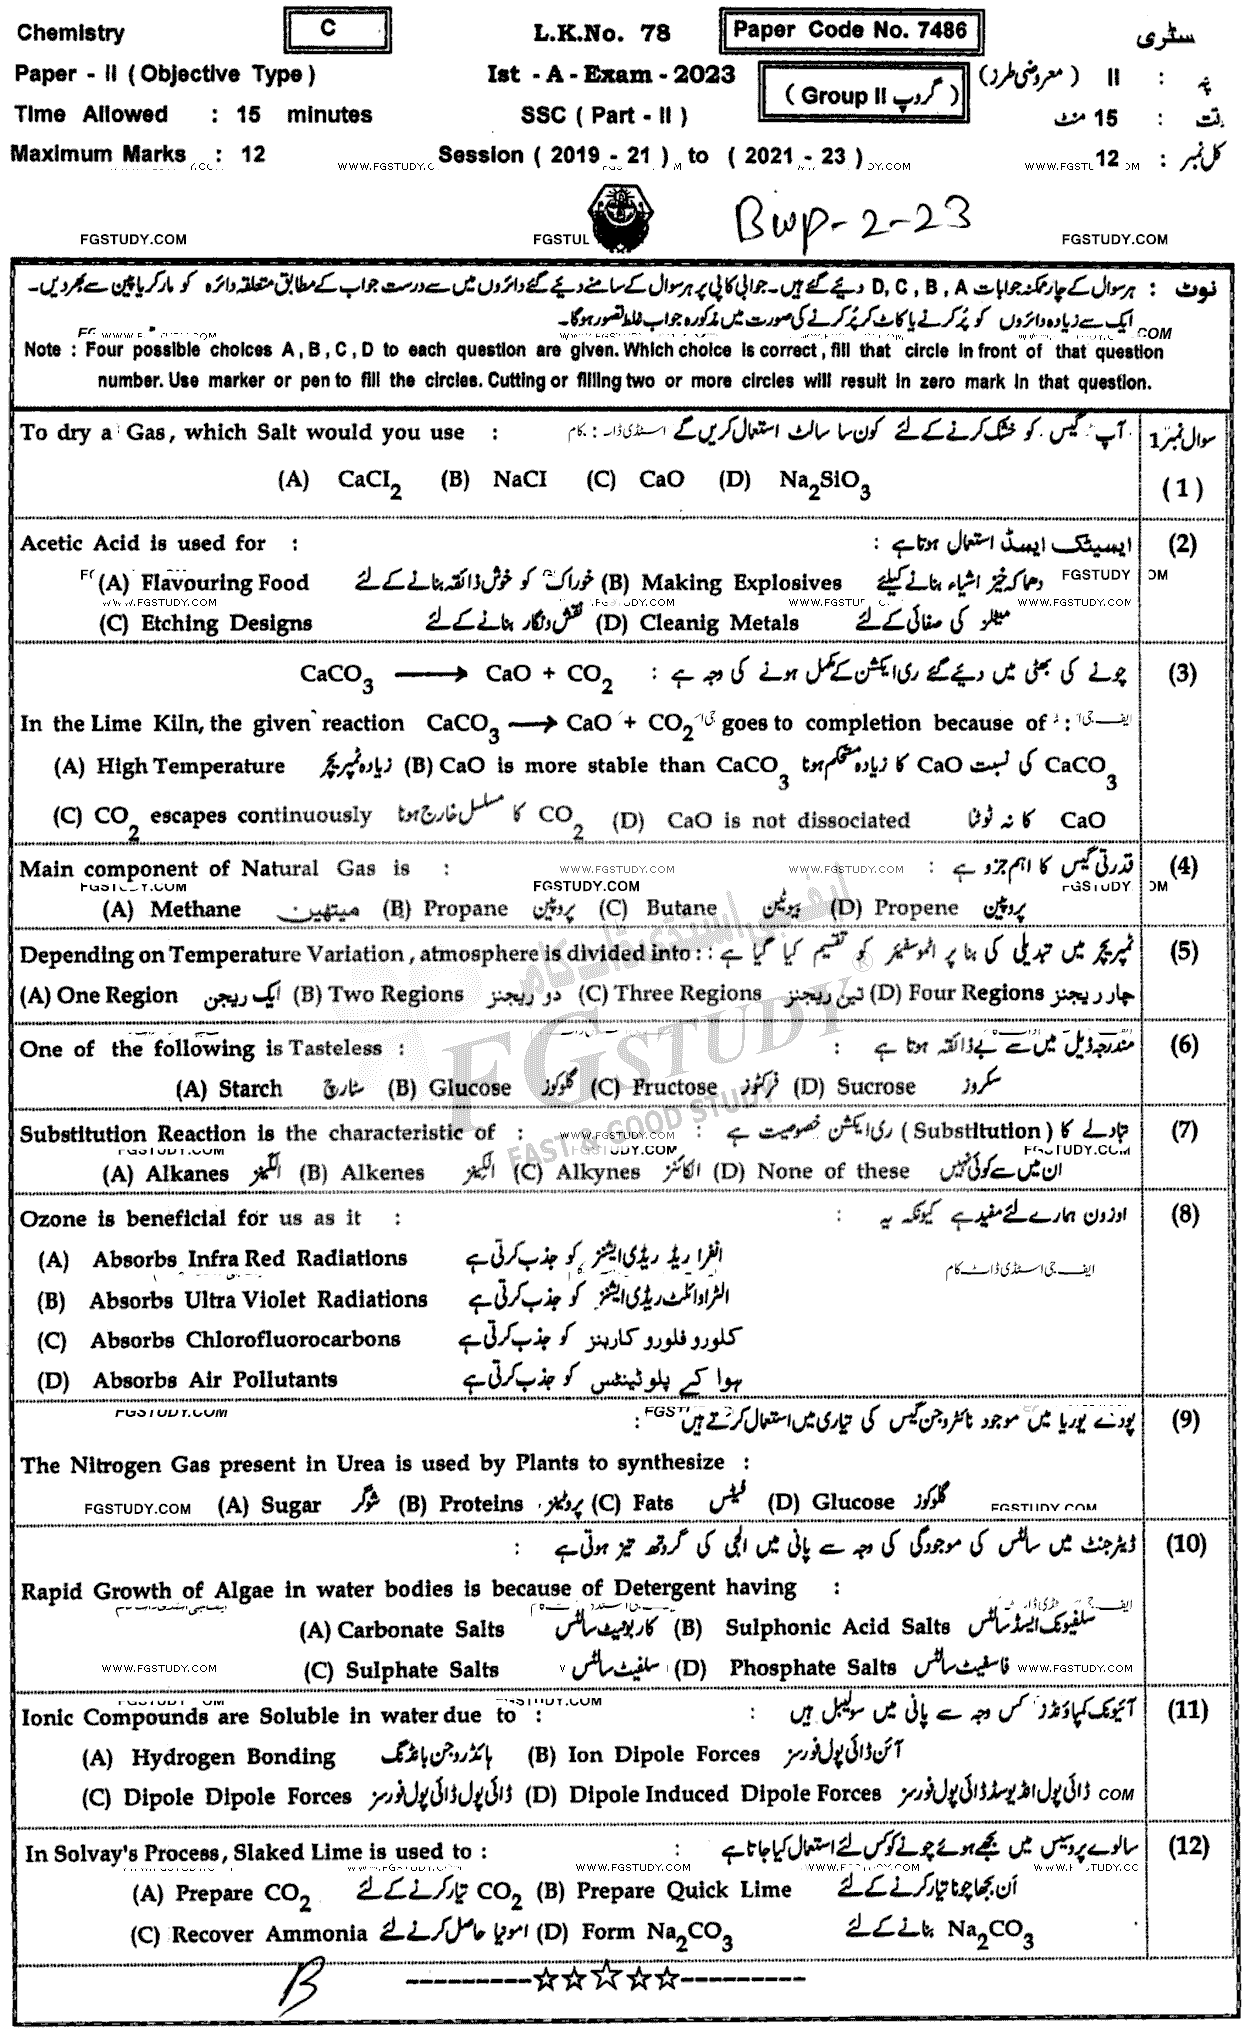 Chemistry C L.K.No. 78 Paper Code No. 7486 سٹری
Paper - II ( Objective Type ) Ist - A - Exam - 2023 ( Group II گروپ ) II ( معروضی طرز )
Time Allowed : 15 minutes SSC ( Part - II ) 15 منٹ :
Maximum Marks : 12 Session ( 2019 - 21 ) to ( 2021 - 23 ) 12 : کل نمبر
WWW.FGSTUDY.C
Bwp-2-23
FGSTUDY.COM FGSTUD FGSTUDY.COM
نوٹ : ہر سوال کے چار ممکنہ جوابات D , C , B , A دیئے گئے ہیں۔ جوابی کاپی پر ہر سوال کے سامنے دیئے گئے دائروں میں سے درست جواب کے مطابق متعلقہ دائرہ کو مارکر یا پین سے بھر دیں۔
ایک سے زیادہ دائروں کو پُر کرنے یا کاٹ کر پُر کرنے کی صورت میں مذکورہ جواب غلط تصور ہو گا۔
Note : Four possible choices A , B , C , D to each question are given. Which choice is correct , fill that circle in front of that question
number. Use marker or pen to fill the circles. Cutting or filling two or more circles will result in zero mark in that question.
To dry a Gas, which Salt would you use : آپ گیس کو خشک کرنے کے لئے کون سا سالٹ استعمال کریں گے سوال نمبر 1
(A) CaCl2 (B) NaCl (C) CaO (D) Na2SiO3 (1)
Acetic Acid is used for : ایسیٹک ایسڈ استعمال ہوتا ہے : (2)
(A) Flavouring Food خوراک کو خوش ذائقہ بنانے کے لئے (B) Making Explosives دھماکہ خیز اشیاء بنانے کیلئے
(C) Etching Designs نقش و نگار بنانے کے لئے (D) Cleanig Metals میٹلز کی صفائی کے لئے
CaCO3 ⟶ CaO + CO2 : چونے کی بھٹی میں دیئے گئے ری ایکشن کے مکمل ہونے کی وجہ ہے (3)
In the Lime Kiln, the given reaction CaCO3 ⟶ CaO + CO2 goes to completion because of :
(A) High Temperature زیادہ ٹمپریچر (B) CaO is more stable than CaCO3 CaCO3 کی نسبت CaO کا زیادہ مستحکم ہونا
(C) CO2 escapes continuously CO2 کا مسلسل خارج ہونا (D) CaO is not dissociated CaO کا نہ ٹوٹنا
Main component of Natural Gas is : قدرتی گیس کا اہم جزو ہے : (4)
(A) Methane میتھین (B) Propane پروپین (C) Butane بیوٹین (D) Propene پروپین
Depending on Temperature Variation , atmosphere is divided into : : ٹمپریچر میں تبدیلی کی بنا پر اٹموسفیئر کو تقسیم کیا گیا ہے (5)
(A) One Region ایک ریجن (B) Two Regions دو ریجنز (C) Three Regions تین ریجنز (D) Four Regions چار ریجنز
One of the following is Tasteless : مندرجہ ذیل میں سے بے ذائقہ ہوتا ہے : (6)
(A) Starch سٹارچ (B) Glucose گلوکوز (C) Fructose فرکٹوز (D) Sucrose سکروز
Substitution Reaction is the characteristic of : تبادلے کا ( Substitution ) ری ایکشن خصوصیت ہے : (7)
(A) Alkanes الکینز (B) Alkenes الکینز (C) Alkynes الکائنز (D) None of these ان میں سے کوئی نہیں
Ozone is beneficial for us as it : اوزون ہمارے لئے مفید ہے کیونکہ یہ : (8)
(A) Absorbs Infra Red Radiations انفرا ریڈ ریڈی ایشنز کو جذب کرتی ہے
(B) Absorbs Ultra Violet Radiations الٹرا وائلٹ ریڈی ایشنز کو جذب کرتی ہے
(C) Absorbs Chlorofluorocarbons کلورو فلورو کاربنز کو جذب کرتی ہے
(D) Absorbs Air Pollutants ہوا کے پلوٹینٹس کو جذب کرتی ہے
پودے یوریا میں موجود نائٹروجن گیس کی تیاری میں استعمال کرتے ہیں : (9)
The Nitrogen Gas present in Urea is used by Plants to synthesize :
FGSTUDY.COM (A) Sugar شوگر (B) Proteins پروٹینز (C) Fats فیٹس (D) Glucose گلوکوز FGSTUDY.COM
ڈیٹرجنٹ میں سالٹس کی موجودگی کی وجہ سے پانی میں الجی کی گروتھ تیز ہوتی ہے : (10)
Rapid Growth of Algae in water bodies is because of Detergent having :
(A) Carbonate Salts کاربونیٹ سالٹس (B) Sulphonic Acid Salts سلفیونک ایسڈ سالٹس
WWW.FGSTUDY.COM (C) Sulphate Salts سلفیٹ سالٹس (D) Phosphate Salts فاسفیٹ سالٹس WWW.FGSTUDY.COM
Ionic Compounds are Soluble in water due to : آئیونک کمپاؤنڈز کس وجہ سے پانی میں سولیبل ہیں : (11)
(A) Hydrogen Bonding ہائڈروجن بانڈنگ (B) Ion Dipole Forces آئن ڈائی پول فورسز
(C) Dipole Dipole Forces ڈائی پول ڈائی پول فورسز (D) Dipole Induced Dipole Forces ڈائی پول انڈیوسڈ ڈائی پول فورسز COM
In Solvay's Process, Slaked Lime is used to : سالوے پروسیس میں بجھے ہوئے چونے کو کس لئے استعمال کیا جاتا ہے : (12)
(A) Prepare CO2 CO2 تیار کرنے کے لئے (B) Prepare Quick Lime ان بجھا چونا تیار کرنے کے لئے
(C) Recover Ammonia امونیا حاصل کرنے لئے (D) Form Na2CO3 Na2CO3 بنانے کے لئے
B
FGSTUDY
FAST & GOOD STUDY